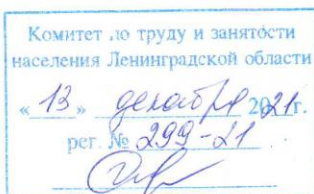 Комитет по труду и занятости
населения Ленинградской области
«13» декабря 2021г.
рег. № 299-21